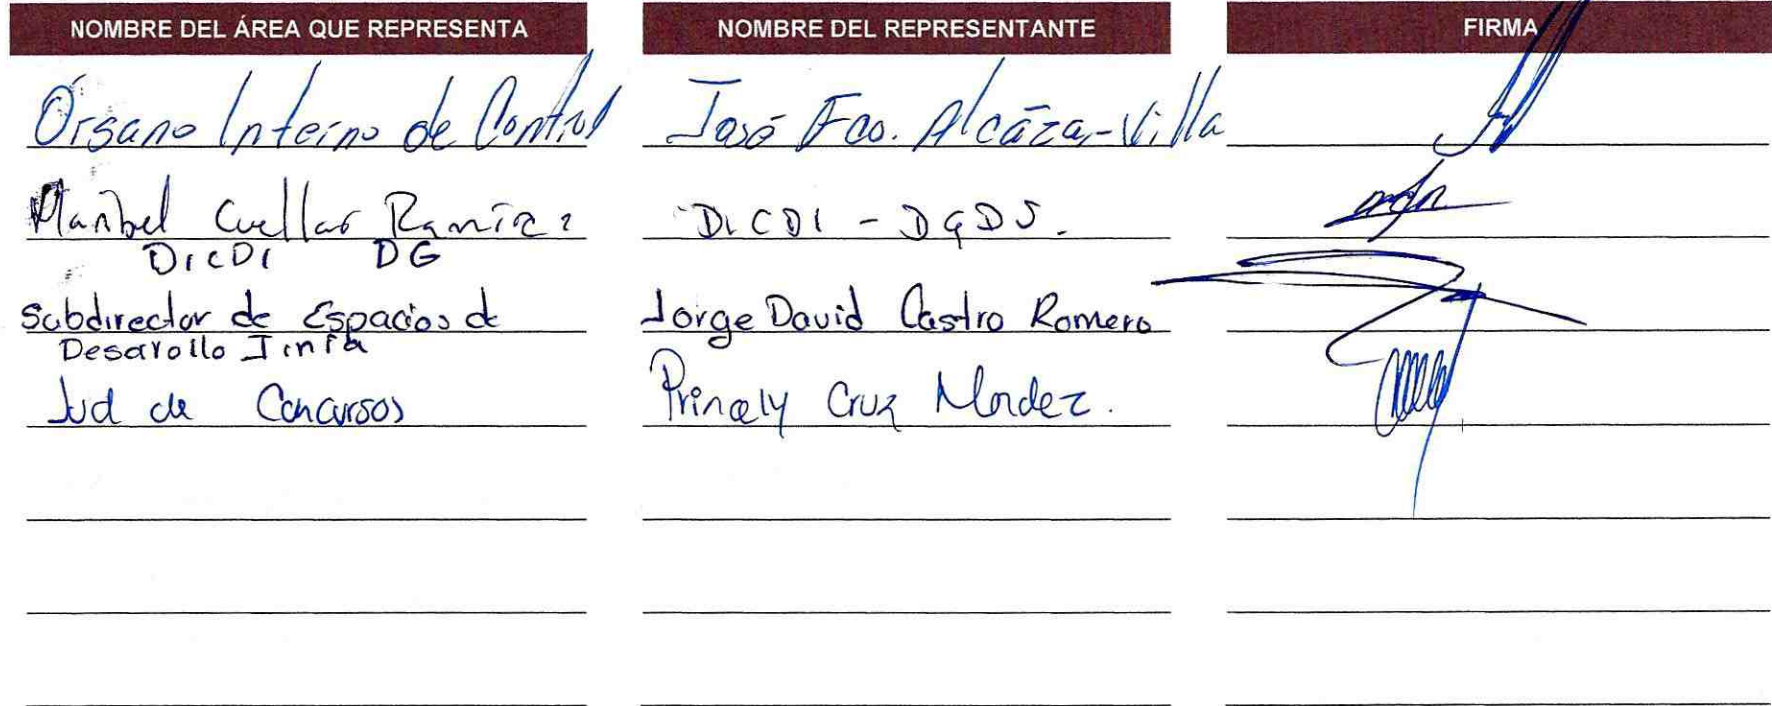 NOMBRE DEL ÁREA QUE REPRESENTA NOMBRE DEL REPRESENTANTE FIRMA
Órgano Interno de Control José Fco. Alcázar Villa
Maribel Cuellar Ramírez DICDI - DGDS.
DICDI DG
Subdirector de Espacios de Jorge David Castro Romero
Desarollo
Jud de Concursos Cruz